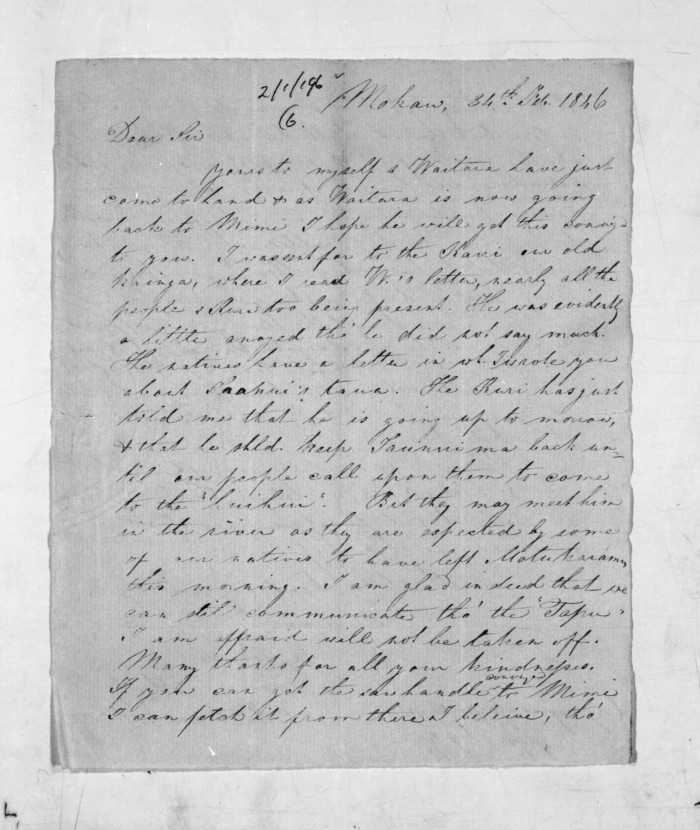 2/1/146
(6.
Mokau, 24th Feb. 1846
Dear Sir
yours to myself & Waitara have just
come to hand & as Waitara is now going
back to Mimi I hope he will get this convey'd
to you. I was sent for to the Kauri an old
where I read W.'s letter, nearly all the
people & Kuri too being present. He was evidently
a little angered tho' he did not say much.
The natives have a letter in wh. I wrote you
about taua. The Kuri has just
told me that he is going up to morrow,
& that he shld. keep back un-
til our people call upon them to come
to the "huihui". But they may meet him
in the river as they are expected by some
of our natives to have left Motukaramu
this morning. I am glad indeed that we
can still communicate tho' the "Tapu"
I am affraid will not be taken off.
Many thanks for all your kindnesses.
If you can get the saw handle conveyed to Mimi
I can fetch it from there I beleive, tho'